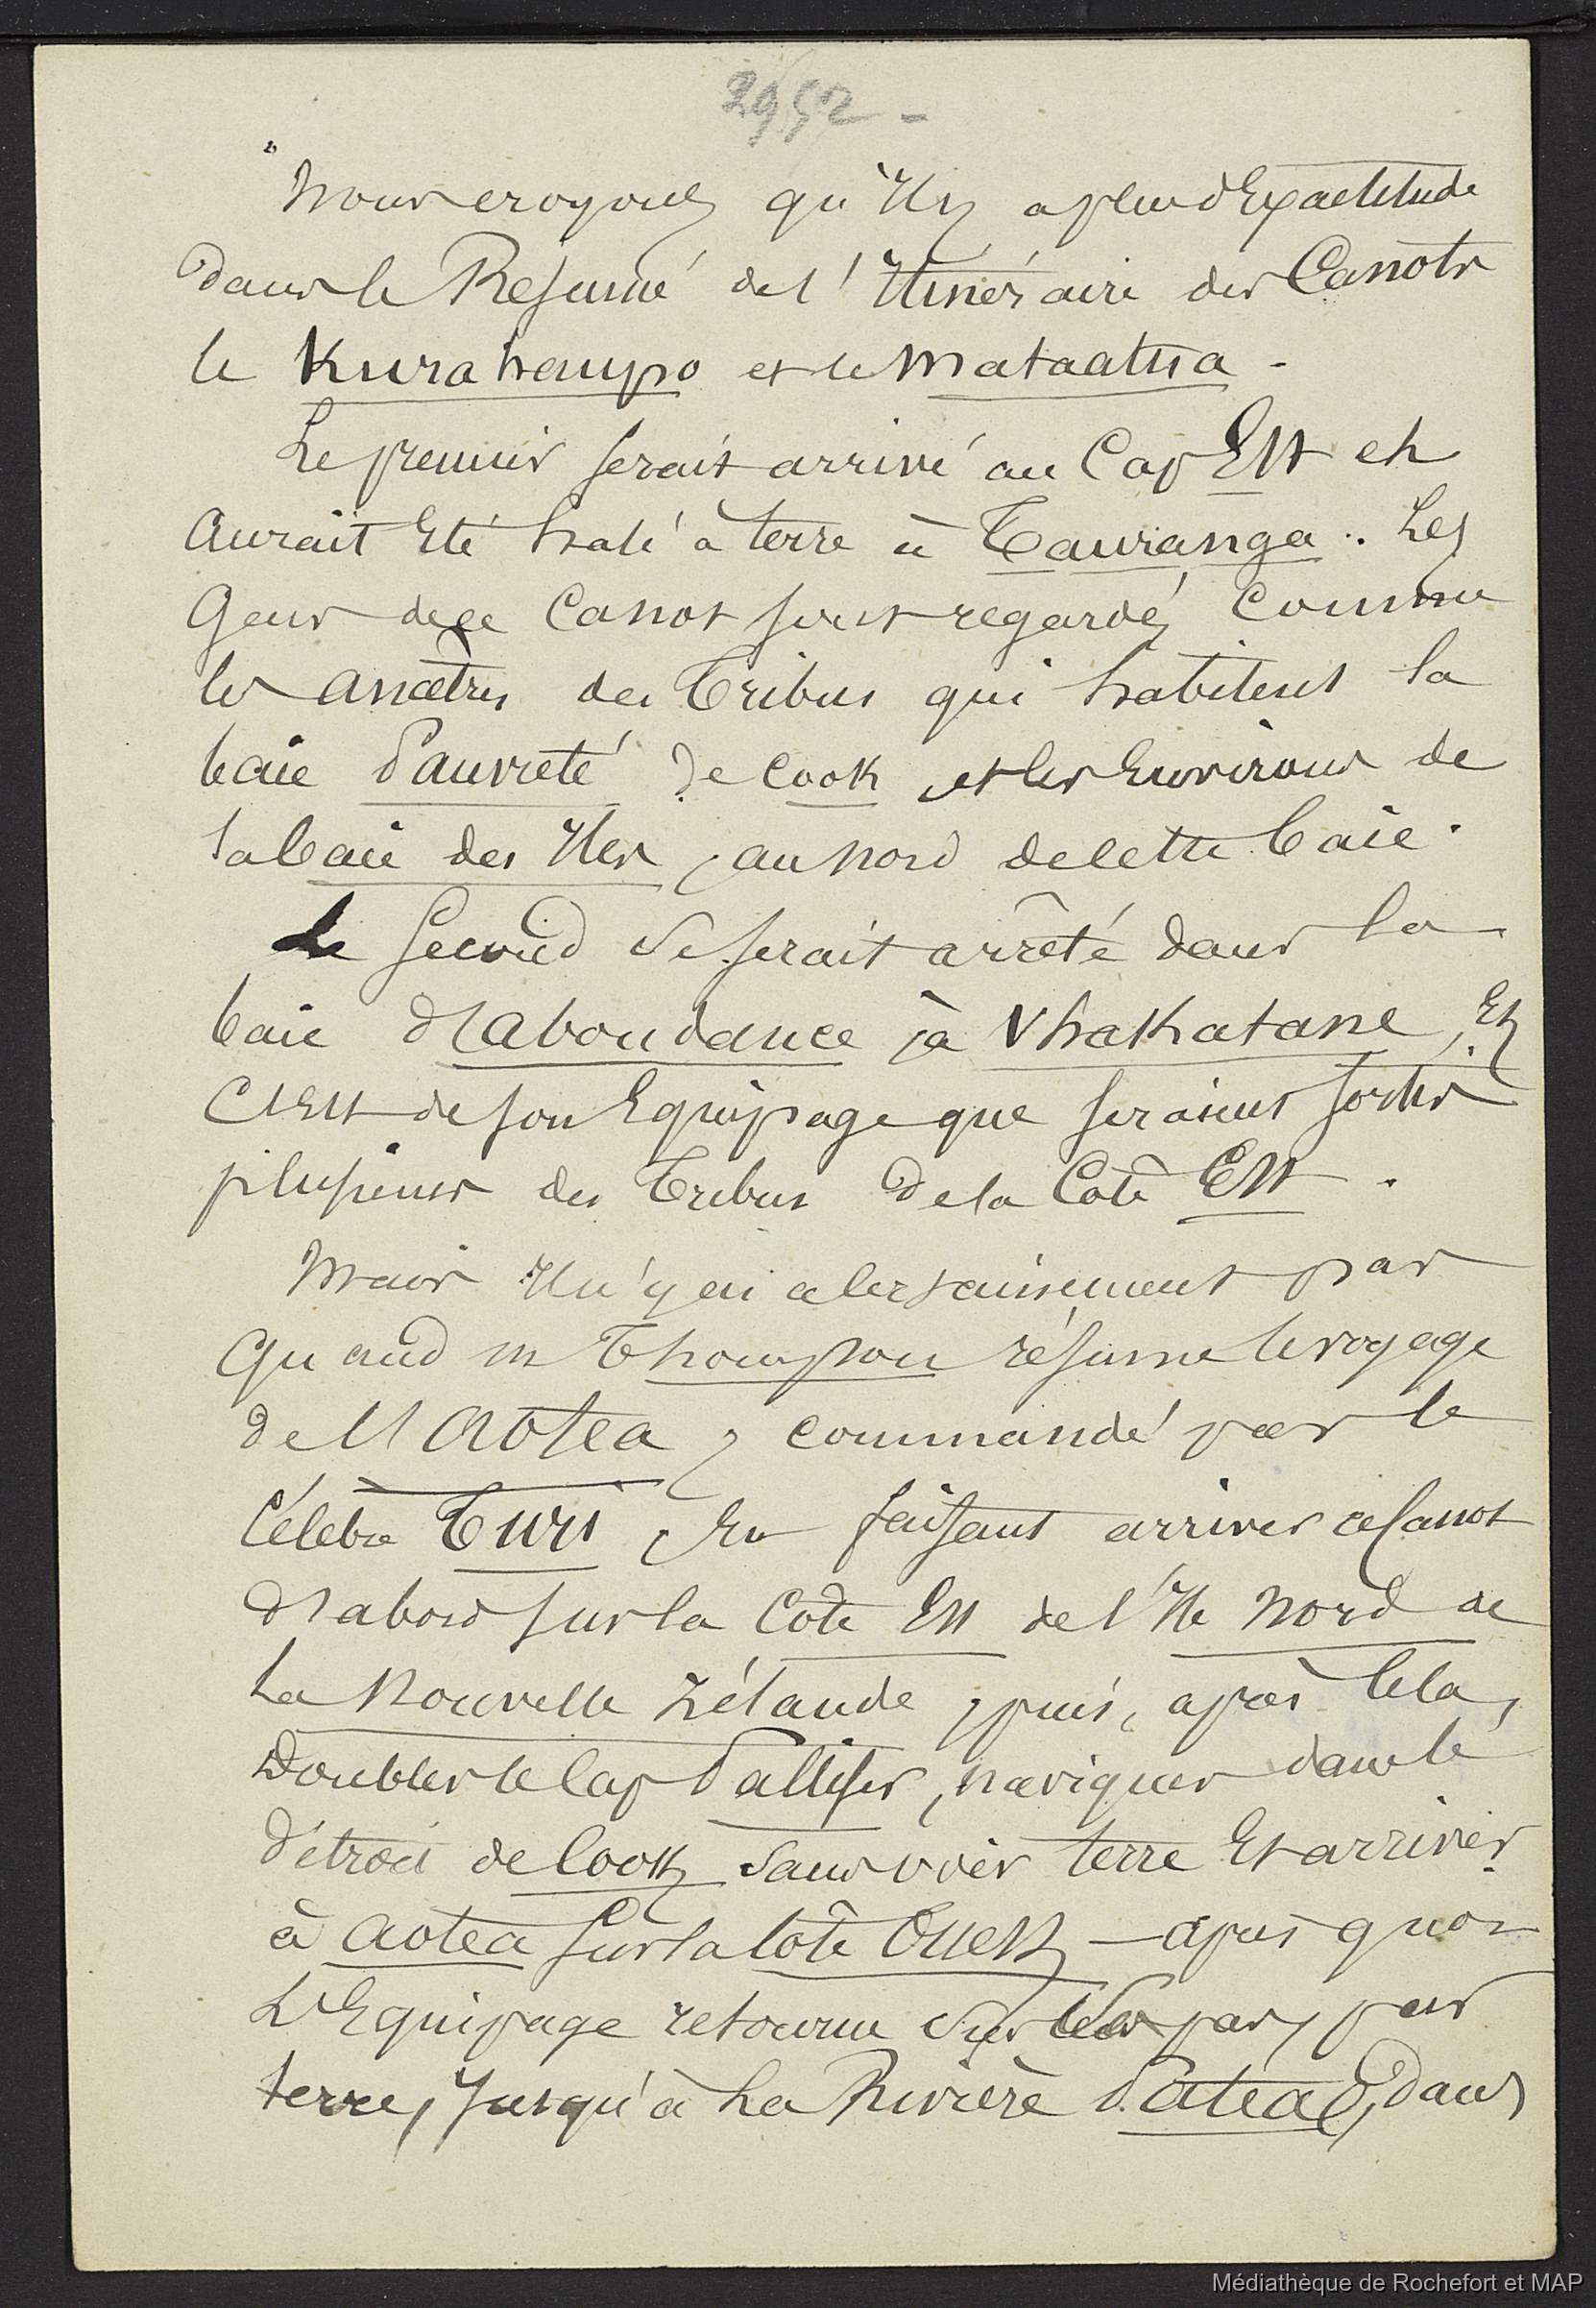 2952 -
"Nous croyons qu'Il y a plus d'Exactitude
dans le Résumé de l'Itinéraire des Canots
le Kurahaupo et le Mataatua -
Le premier serait arrivé au Cap Est et
Aurait Eté halé à terre à Tauranga. Les
Gens de ce Canot sont regardés comme
les ancêtres des Tribus qui habitent la
baie Pauvreté de Cook et les Environs de
la baie des Iles, au nord de cette baie.
Le Second Se serait arrêté dans la
baie d'abondance, à Vhakatane, Et
C'Est de son Equipage que seraient sortis
plusieurs des Tribus de la Côte Est.
Mais Il n'y en a certainement pas
Quand M Thompson résume le voyage
de l'Aotea, commandé par le
Célèbre Turi, En faisant arriver ce Canot
d'abord sur la Côte Est de l'Ile Nord de
La Nouvelle Zélande, puis, après Cela,
Doubler le Cap Palliser, naviguer dans le
Détroit de Cook Sans voir terre Et arriver
à Aotea sur la Côte Ouest, - après quoi
L'Equipage retourne Sur Ses pas, par
terre, Jusqu'à La Rivière Patea, dans
Médiathèque de Rochefort et MAP